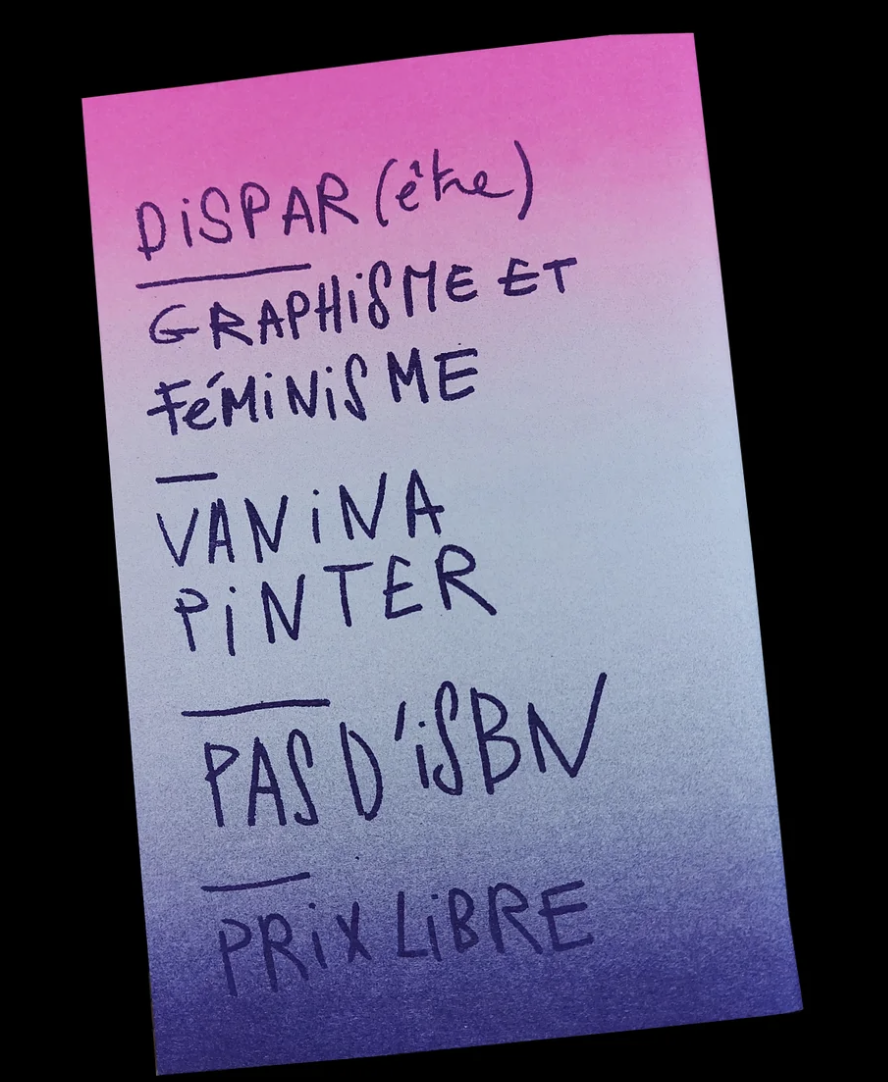 DiSPAR (être)
GRAPHiSME ET
FéMiNiSME
VANiNA
PiNTER
PAS D'iSBN
PRiX LiBRE